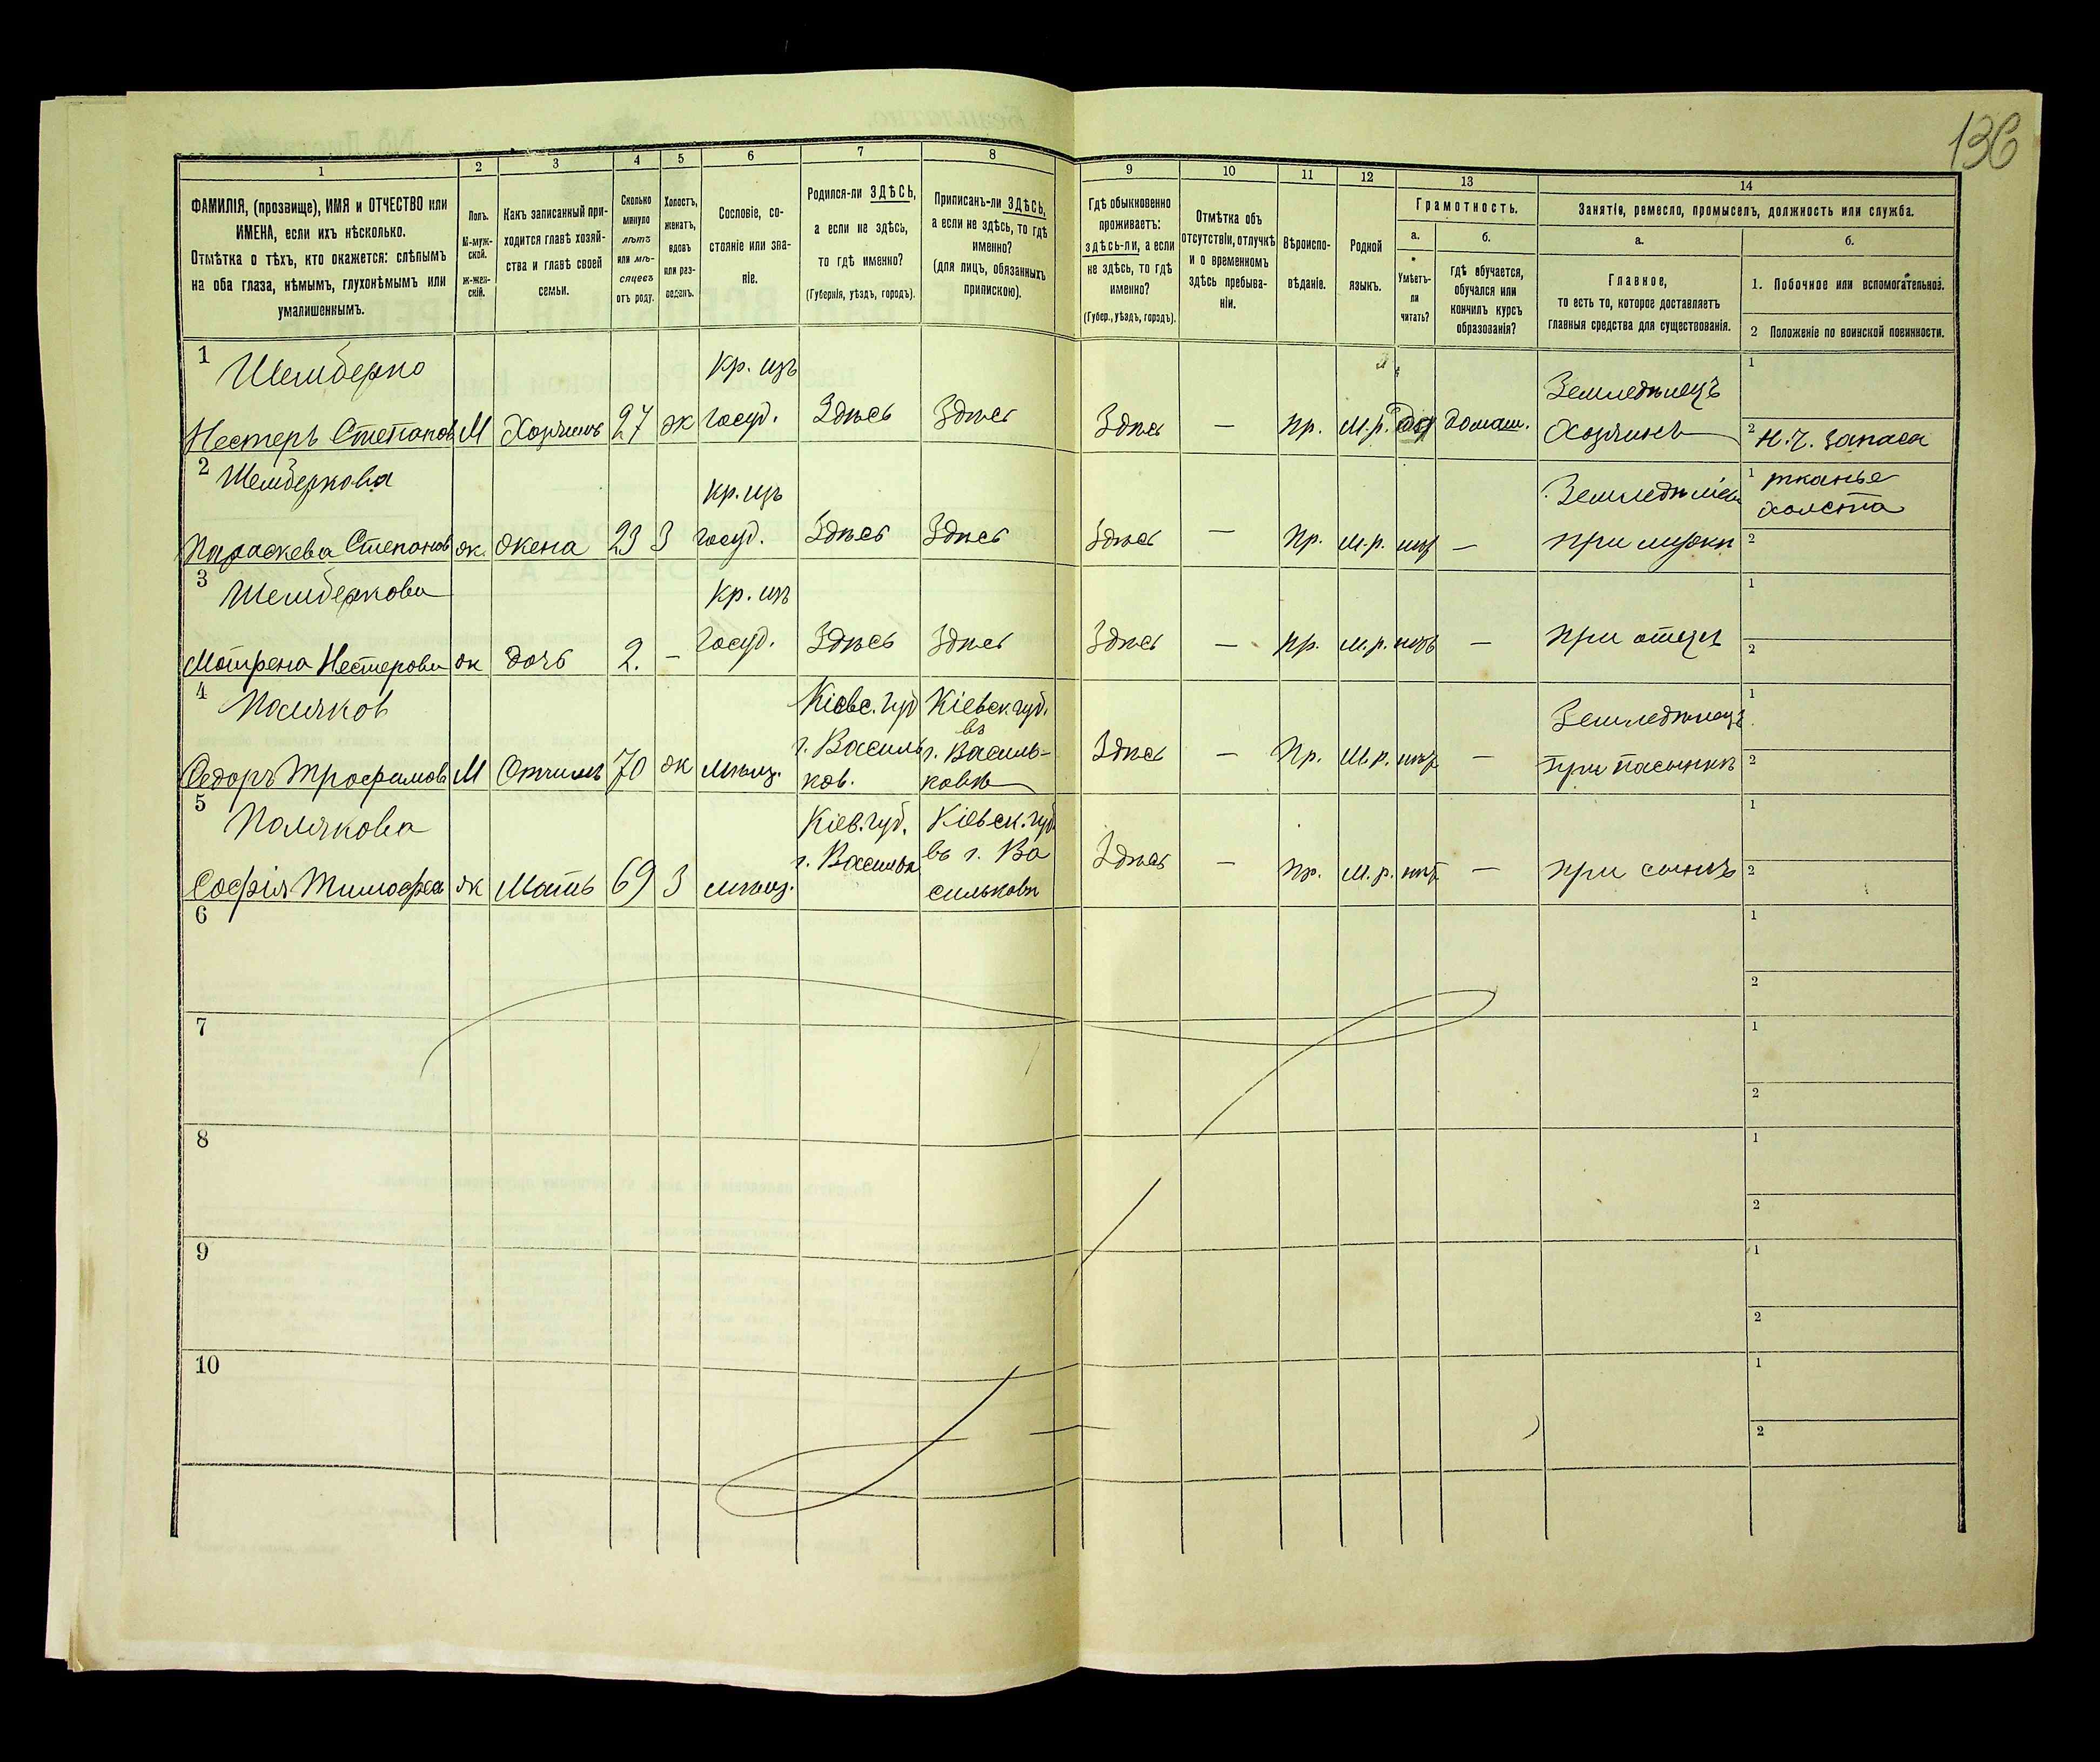 136
1 2 3 4 5 6 7 8 9 10 11 12 13 14
ФАМИЛІЯ, (прозвище), ИМЯ и ОТЧЕСТВО или
ИМЕНА, если ихъ нѣсколько.
Отмѣтка о тѣхъ, кто окажется: слѣпымъ
на оба глаза, нѣмымъ, глухонѣмымъ или
умалишеннымъ.
Полъ.
М-муж-
ской.
Ж-жен-
скій.
Какъ записанный при-
ходится главѣ хозяй-
ства и главѣ своей
семьи.
Сколько
минуло
лѣтъ
или мѣ-
сяцевъ
отъ роду.
Холостъ,
женатъ,
вдовъ
или раз-
веденъ.
Сословіе, со-
стояніе или зва-
ніе.
Родился-ли ЗДѢСЬ,
а если не здѣсь,
то гдѣ именно?
(Губернія, уѣздъ, городъ).
Приписанъ-ли ЗДѢСЬ,
а если не здѣсь, то гдѣ
именно?
(для лицъ, обязанныхъ
припискою).
Гдѣ обыкновенно
проживаетъ:
здѣсь-ли, а если
не здѣсь, то гдѣ
именно?
(Губер., уѣздъ, городъ).
Отмѣтка объ
отсутствіи, отлучкѣ
и о временномъ
здѣсь пребыва-
ніи.
Вѣроиспо-
вѣданіе.
Родной
языкъ.
Грамотность.
а.
Умѣетъ-
ли
читать?
б.
гдѣ обучается,
обучался или
кончилъ курсъ
образованія?
Занятіе, ремесло, промыселъ, должность или служба.
а.
Главное,
то есть то, которое доставляетъ
главныя средства для существованія.
б.
1. Побочное или вспомогательное.
2 Положеніе по воинской повинности.
1 Шемберко Кр. изъ Земледѣлецъ 1
Нестеръ Степанов М Хозяинъ 27 ж госуд. Здѣсь Здѣсь Здѣсь — Пр. М.р. домаш. Хозяинъ 2 Н.ч. запаса
2 Шемберкова Кр. изъ 1 тканье
холста
Параскева Степанов ж. жена 23 З госуд. Здѣсь Здѣсь Здѣсь — Пр. М.р. нѣт — при мужѣ 2
3 Шемберкова Кр. изъ 1
Матрена Нестерова ж дочь 2. — госуд. Здѣсь Здѣсь Здѣсь — пр. м.р. нѣтъ — при отцѣ 2
4 Поляков Кіевс. губ Кіевск. губ. Земледѣлецъ 1
г. Василь въ г. Василь-
Ѳедоръ Трофимовъ М Отчимъ 70 ж мѣщ. ков. ковѣ Здѣсь — Пр. М.р. нѣт — при пасынкѣ 2
5 Полякова Кіев. губ. Кіевск. губ 1
г. Васильк въ г. Ва
Софія Тимофеев ж Мать 69 З мѣщ. сильковѣ Здѣсь — Пр. М.р. нѣт — при сынѣ 2
6 1
2
7 1
2
8 1
2
9 1
2
10 1
2